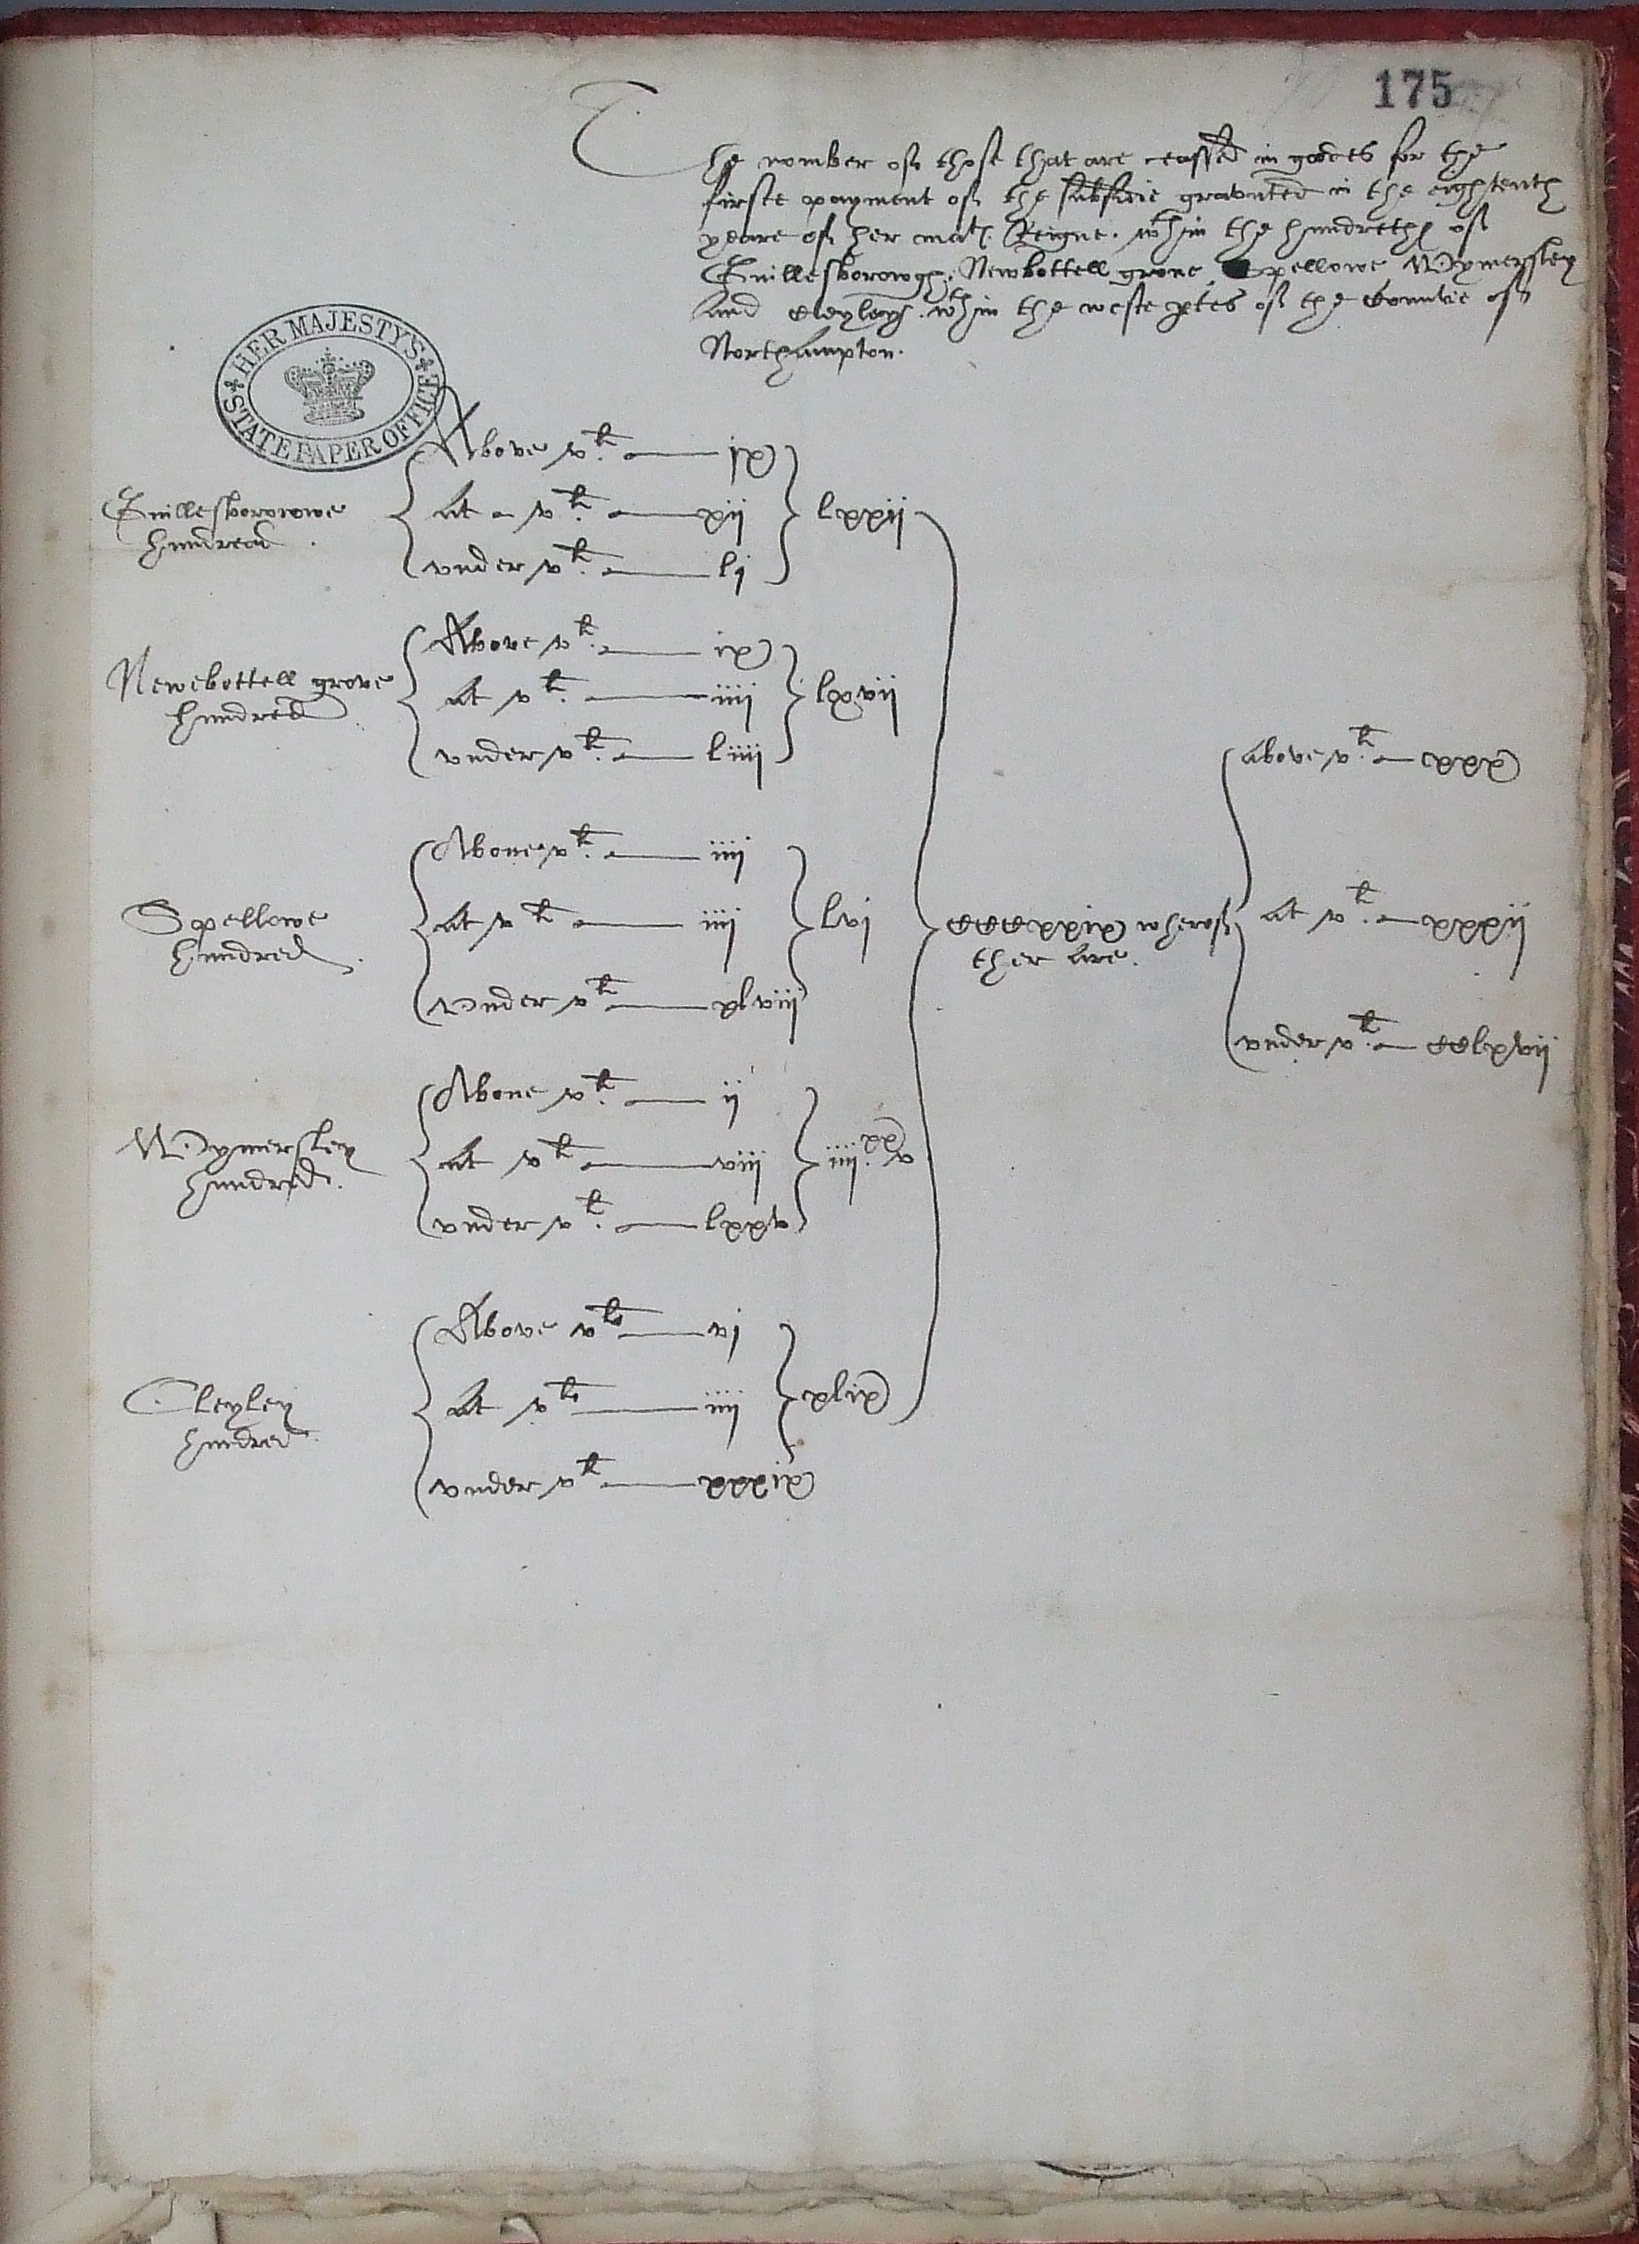 175
The nomber of those that are ceassed in goodes for the
firste payment of the subsidie graunted in the eightenth
yeare of her mat(es). Reigne. w(th)in the hundrethes of
Guillesborowgh, Newbottell grove, Spellowe Wymersley
and Cleyley. w(th)in the weste p(ar)tes of the Countie of
Northampton.
HER MAJESTY'S STATE PAPER OFFICE
Guillesborowe
hundred.
Above v li. — ix
At — v li. — xij
vnder v li. — lj
lxxij
Newebottell grove
hundred
Above v li. — ix
At v li. — iiij
vnder v li. — liiij
lxvij
Spellowe
hundred.
Above v li. — iiij
At v li — iiij
Vnder v li. — xlviij
lvj
Wymersley
hundred.
Above v li. — ij
At v li. — viij
vnder v li. — lxxv
iiij xx v
Cleyley
hundred
Above v li — vj
At v li — iiij
vnder v li — xxxix
xlix
CCCxxix wherof
ther are.
above v li. — xxx
At v li. — xxxij
vnder v li. — CClxvij